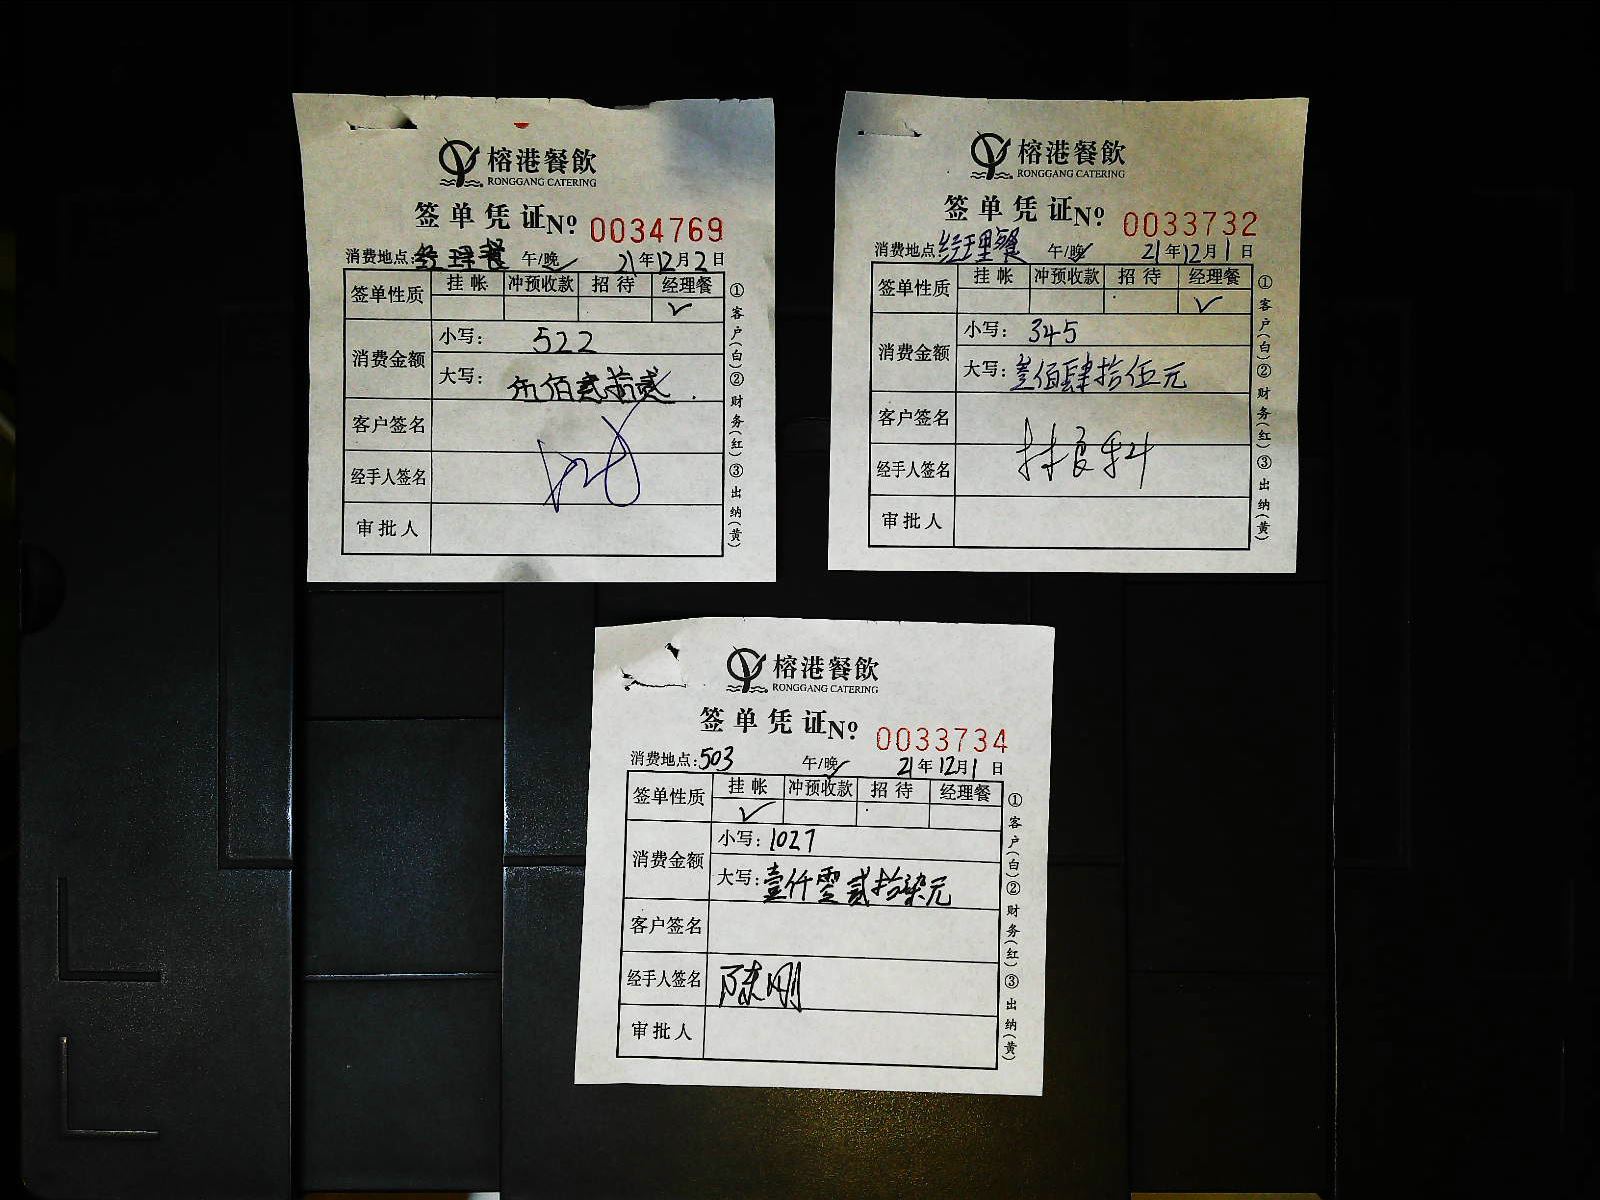 榕港餐飲
RONGGANG CATERING
签单凭证Nº 0034769
消费地点:经理餐 午/晚✓ 21年12月2日
签单性质 挂帐 冲预收款 招待 经理餐
✓
消费金额 小写: 522
大写: 伍佰贰拾贰
客户签名
经手人签名
审批人
①客户(白)②财务(红)③出纳(黄)
榕港餐飲
RONGGANG CATERING
签单凭证Nº 0033732
消费地点:经理餐 午/晚✓ 21年12月1日
签单性质 挂帐 冲预收款 招待 经理餐
✓
消费金额 小写: 345
大写: 叁佰肆拾伍元
客户签名
经手人签名 林良科
审批人
①客户(白)②财务(红)③出纳(黄)
榕港餐飲
RONGGANG CATERING
签单凭证Nº 0033734
消费地点:503 午/晚✓ 21年12月1日
签单性质 挂帐 冲预收款 招待 经理餐
✓
消费金额 小写: 1027
大写: 壹仟零贰拾柒元
客户签名
经手人签名 陈刚
审批人
①客户(白)②财务(红)③出纳(黄)